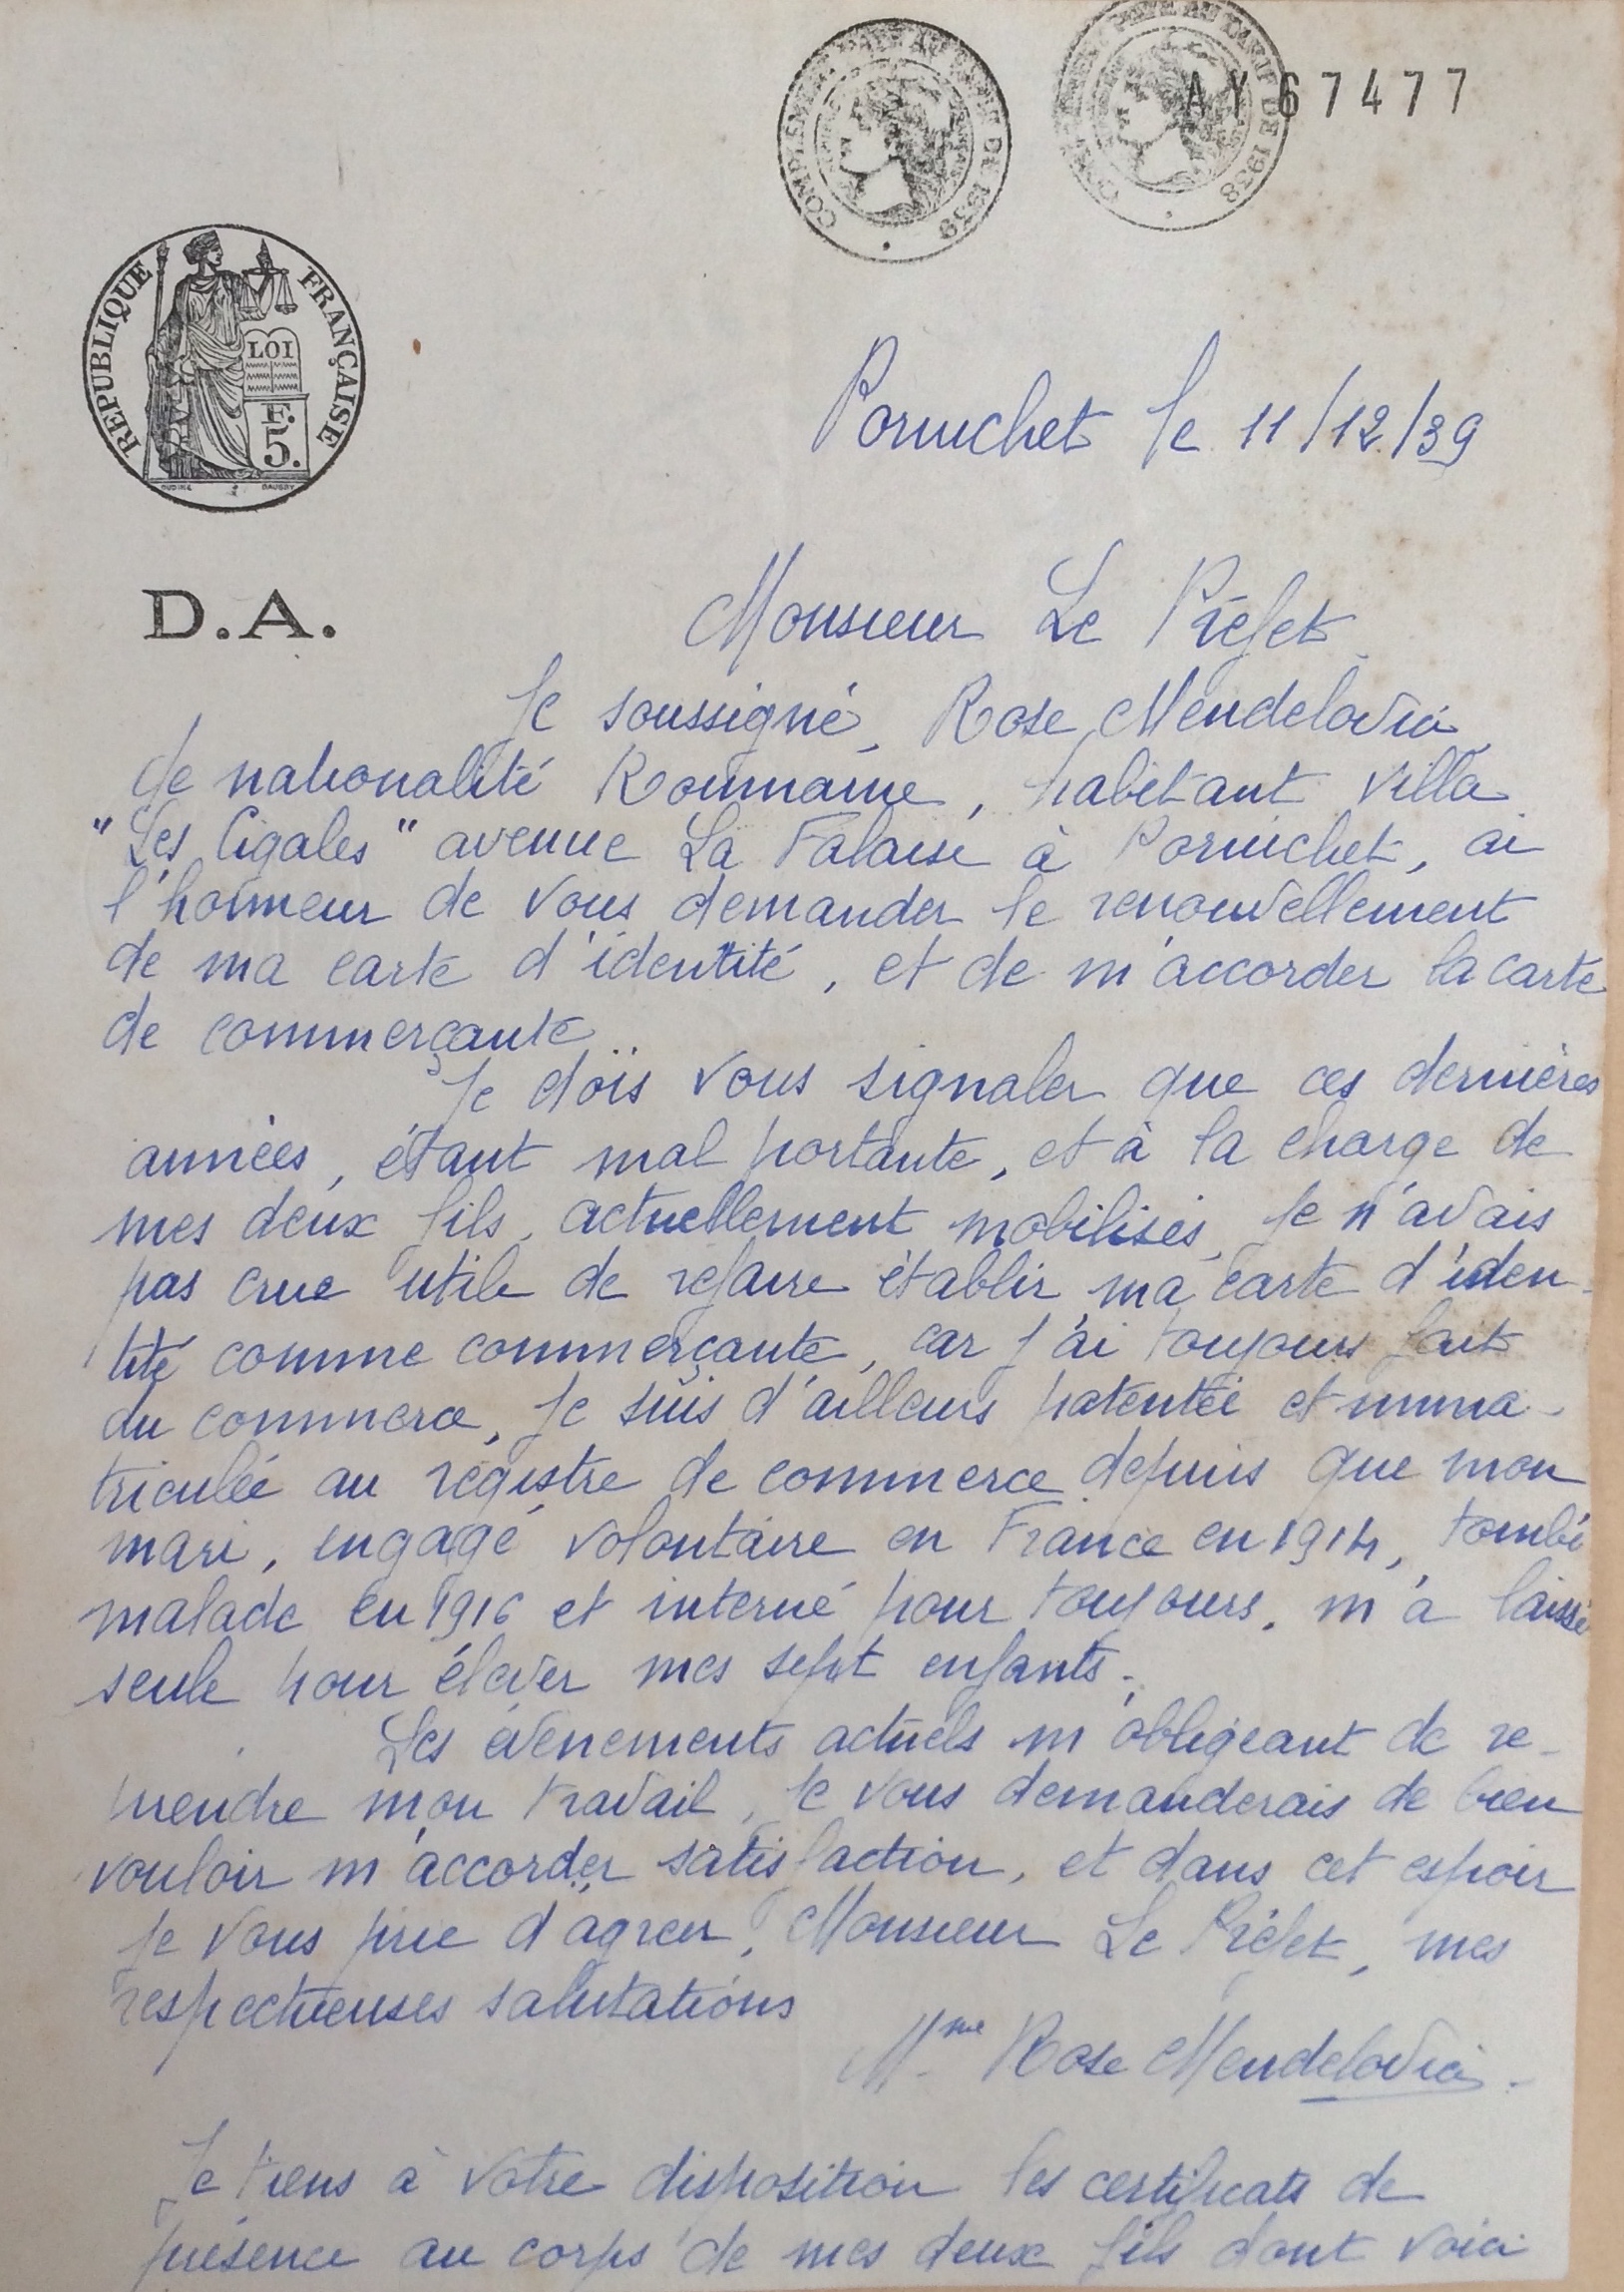 COMPLÉMENT AU TARIF DE 1939
AU TARIF DE 1938
AY 67477
RÉPUBLIQUE FRANÇAISE
LOI
F.
5.
D.A.
Pornichet le 11/12/39
Monsieur Le Préfet
Je soussigné, Rose Mendelovici
de nationalité Roumaine, habitant villa
"Les Cigales" avenue La Falaise à Pornichet, ai
l'honneur de vous demander le renouvellement
de ma carte d'identité, et de m'accorder la carte
de commerçante
Je dois vous signaler que ces dernières
années, étant mal portante, et à la charge de
mes deux fils, actuellement mobilisés, je n'avais
pas crue utile de refaire établir ma carte d'iden-
tité comme commerçante, car j'ai toujours fait
du commerce, je suis d'ailleurs patentée et imma-
triculée au régistre de commerce depuis que mon
mari, engagé volontaire en France en 1914, tombé
malade en 1916 et interné pour toujours, m'a laissé
seule pour élever mes sept enfants.
Les évènements actuels m'obligeant de re-
prendre mon travail, je vous demanderais de bien
vouloir m'accorder satisfaction, et dans cet espoir
je vous prie d'agréer, Monsieur Le Préfet, mes
respectueuses salutations
Mme Rose Mendelovici.
Je tiens à votre disposition les certificats de
présence au corps de mes deux fils dont voici